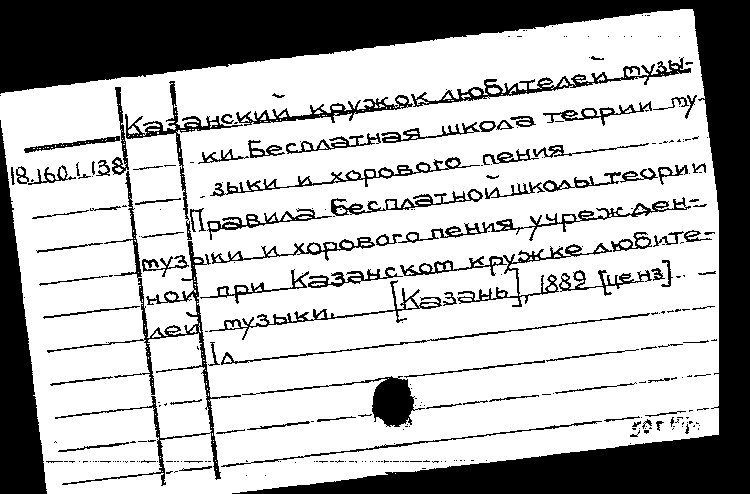 Казанский кружок любителей музы-
18.160.1.138
ки. Бесплатная школа теории му-
зыки и хорового пения.
Правила бесплатной школы теории
музыки и хорового пения, учрежден-
ной при Казанском кружке любите-
лей музыки. [Казань], 1882 [ценз]. —
1 л.